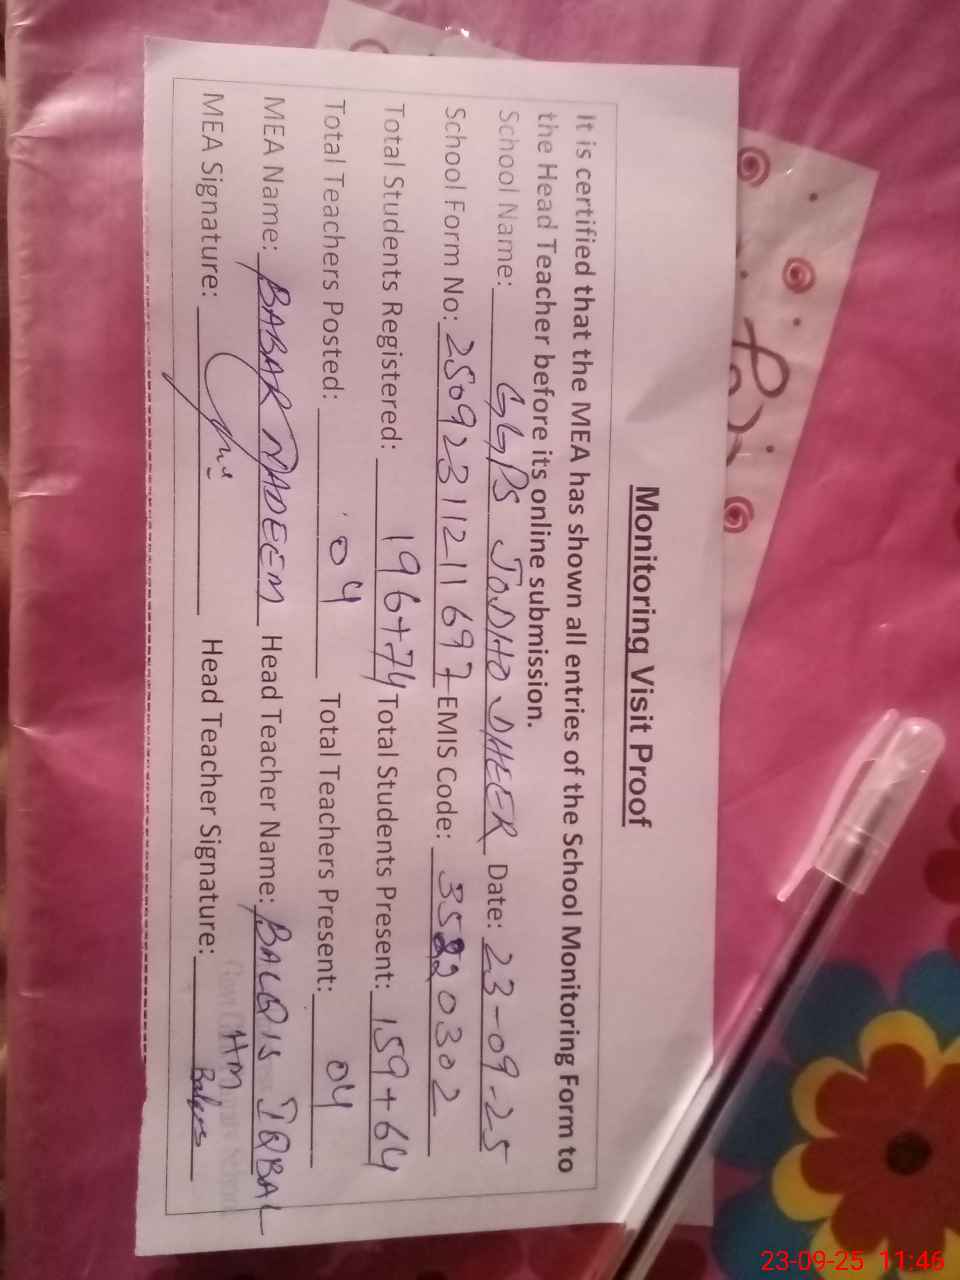 Monitoring Visit Proof
It is certified that the MEA has shown all entries of the School Monitoring Form to
the Head Teacher before its online submission.
School Name: GGPS JODHO DHEER Date: 23-09-25
School Form No: 250923112111697 EMIS Code: 35220302
Total Students Registered: 196+74 Total Students Present: 159+64
Total Teachers Posted: 04 Total Teachers Present: 04
MEA Name: BABAR NADEEM Head Teacher Name: BALQIS IQBAL
MEA Signature: Head Teacher Signature:
HM
23-09-25 11:46